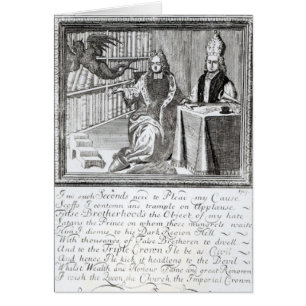 I no such Seconds need to Plead my Cause
Scoffs I contemn and trample on Applause
False Brotherhood's the Object of my hate
Satans the Prince on whom those mungrels waite
Him I dismis to his Dark Region Hell
With thousands of False Brethren to dwell
And to the Triple Crown He is as Civil
And hence He kick it headlong to the Devil
Whilst Wealth and Honour Fame and great Renown
I wish the Queen the Church the Imperial Crown